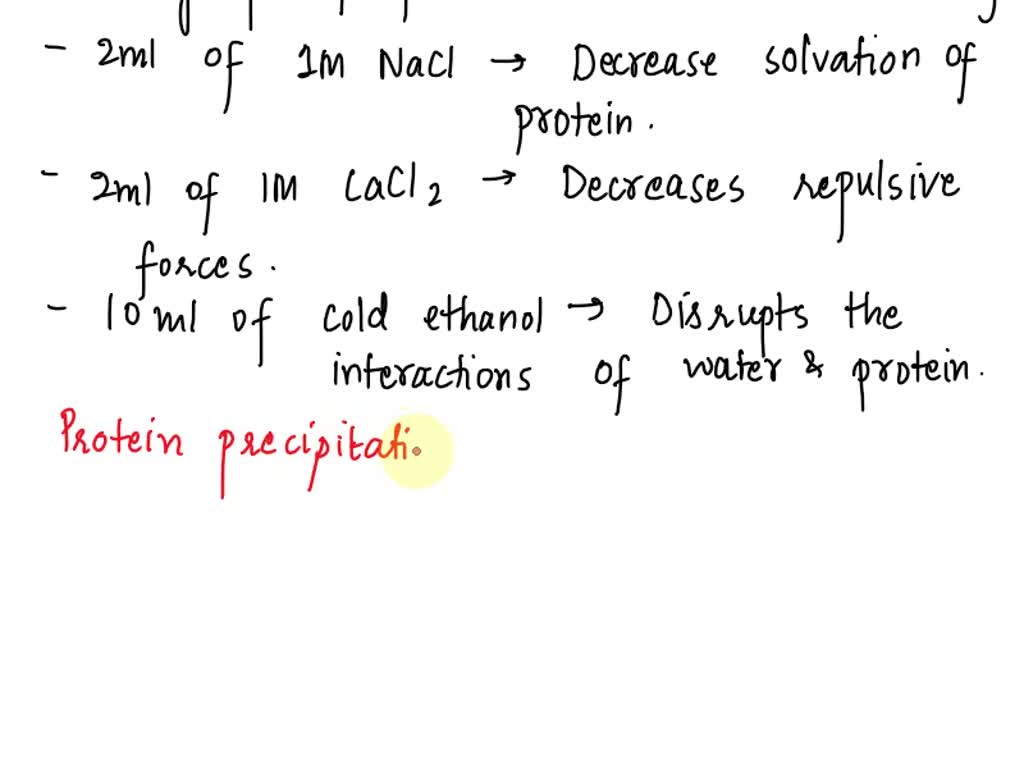 - 2ml of 1M NaCl → Decrease solvation of
protein.
- 2ml of 1M CaCl2 → Decreases repulsive
forces.
- 10 ml of cold ethanol → Disrupts the
interactions of water & protein.
Protein precipitati